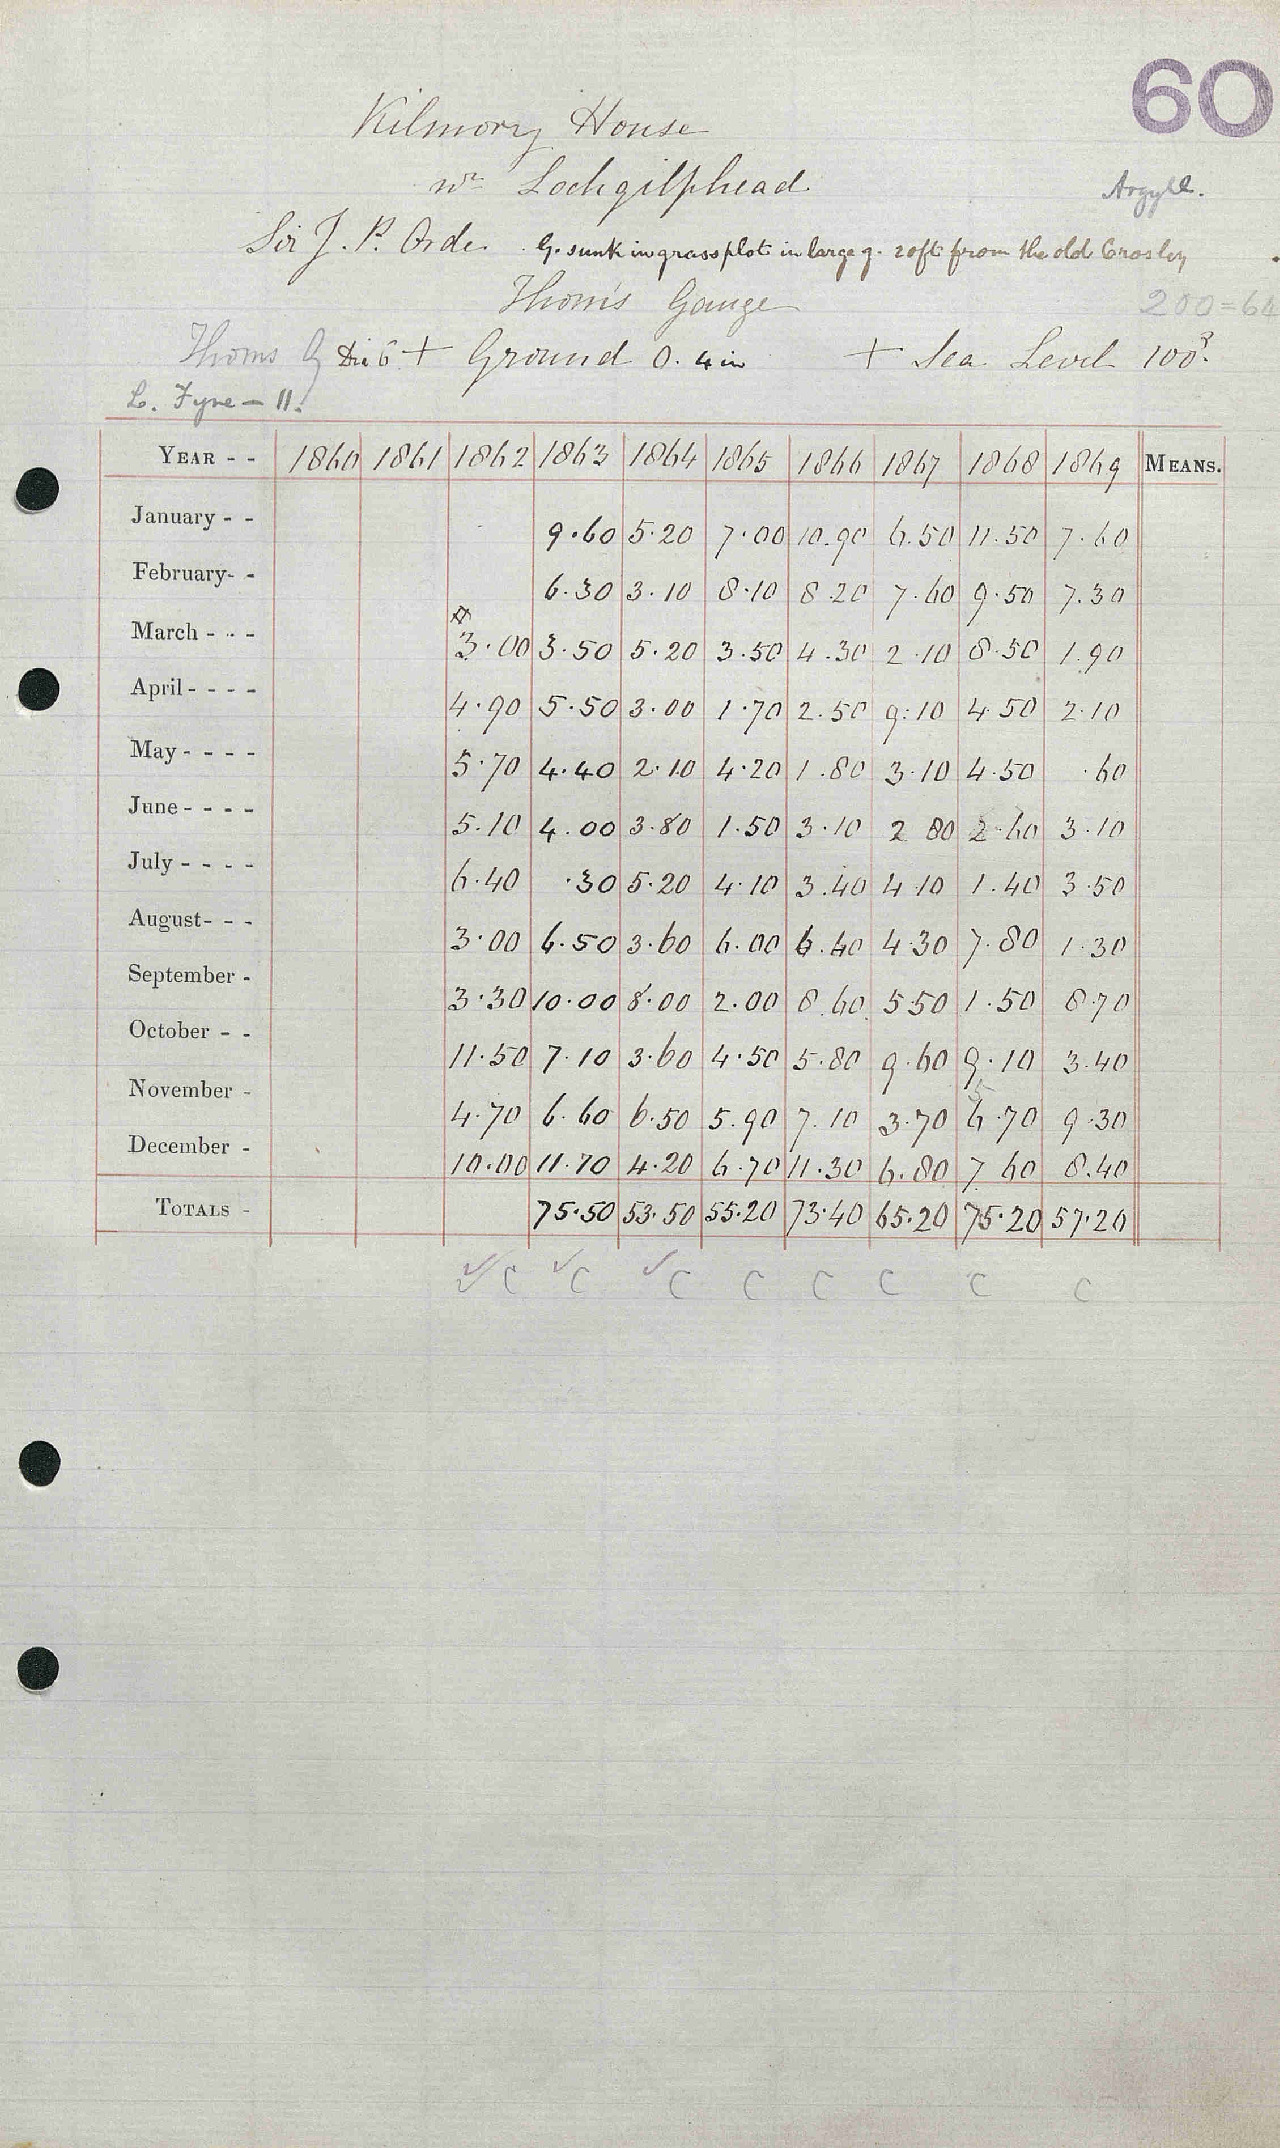 60
Kilmory House
nr Lochgilphead
Argyll.
Sir J. P. Orde. G. sunk in grass plot in large g. 20ft from the old Crosley
Thom's Gauge
200=64
Thoms G Dia 6 + Ground 0. 4 in + Sea Level 100?
L. Fyne — 11.
YEAR - - 1860 1861 1862 1863 1864 1865 1866 1867 1868 1869 MEANS.
January - - 9.60 5.20 7.00 10.90 6.50 11.50 7.60
February- - 6.30 3.10 8.10 8.20 7.60 9.50 7.30
March - - - 3.00 3.50 5.20 3.50 4.30 2.10 8.50 1.90
April - - - - 4.90 5.50 3.00 1.70 2.50 9.10 4.50 2.10
May - - - - 5.70 4.40 2.10 4.20 1.80 3.10 4.50 .60
June - - - - 5.10 4.00 3.80 1.50 3.10 2 80 2.60 3.10
July - - - - 6.40 .30 5.20 4.10 3.40 4.10 1.40 3.50
August- - - 3.00 6.50 3.60 6.00 6.40 4.30 7.80 1.30
September - 3.30 10.00 8.00 2.00 8.60 5.50 1.50 8.70
October - - 11.50 7.10 3.60 4.50 5.80 9.60 9.10 3.40
5
November - 4.70 6.60 6.50 5.90 7.10 3.70 6.70 9.30
December - 10.00 11.70 4.20 6.70 11.30 6.80 7 60 8.40
TOTALS - 75.50 53.50 55.20 73.40 65.20 75.20 57.20
✓✓ C ✓ C ✓ C C C C C C